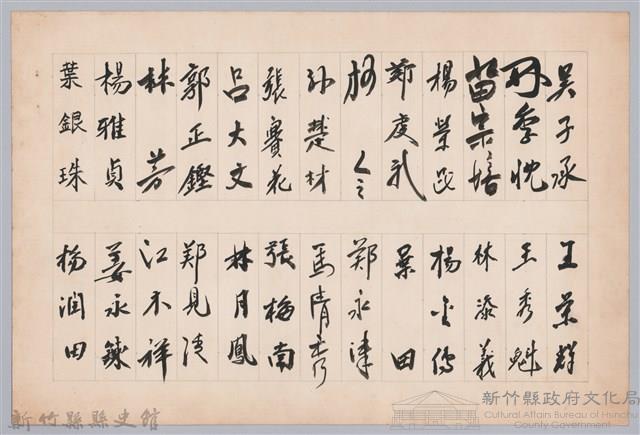 吳子承
孫季忱
苗宗培
楊榮
鄭
柯
孫楚材
張寶花
呂大文
郭正鏗
林芳
楊雅貞
葉銀珠
王景群
王秀魁
林添義
楊金傳
葉田
鄭永漢
馬清秀
張梅南
林月鳳
鄭見
江不祥
姜永鍊
楊潤田
新竹縣縣史館
新竹縣政府文化局
Cultural Affairs Bureau of Hsinchu
County Government